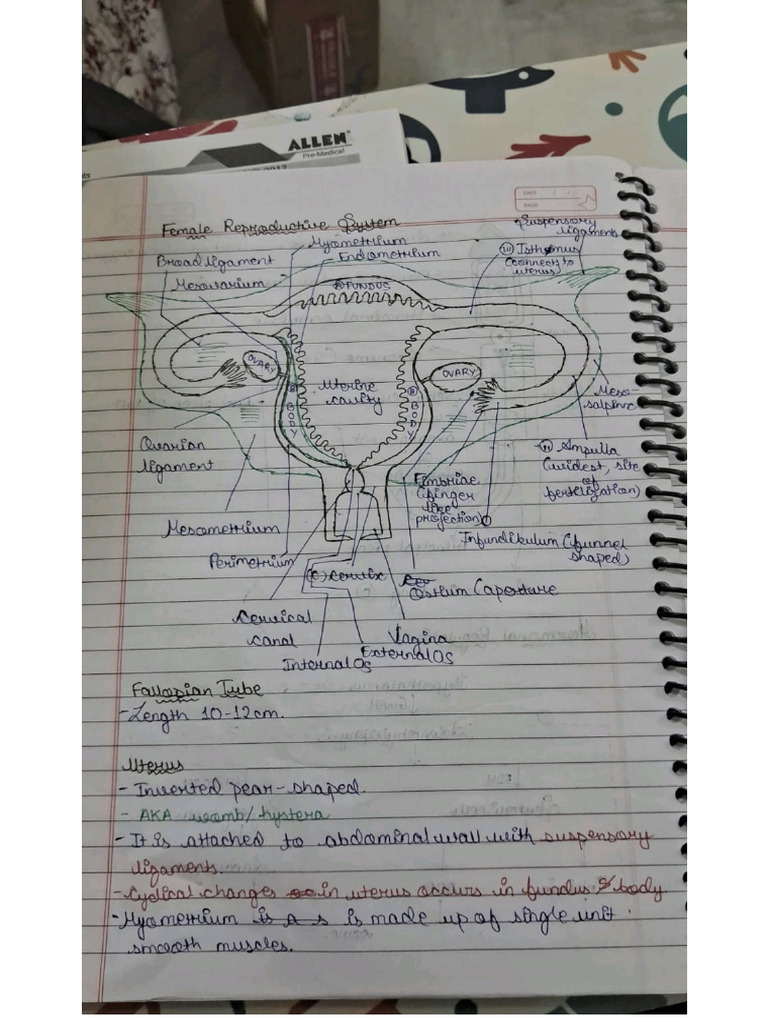 ALLEN®
Pre-Medical
DATE / /
PAGE
Female Reproductive System
Suspensory
ligaments
Myometrium
Endometrium
(III) Isthmus
(connects to
uterus)
Broad ligament
Mesovarium
(A) FUNDUS
OVARY
Uterine
cavity
OVARY
(B) BODY
(B) BODY
Meso-
salpinx
Ovarian
ligament
(II) Ampulla
(widest, site
of
fertilization)
Fimbriae
(finger
like
projection)
Infundibulum (funnel
shaped)
Mesometrium
Perimetrium
(C) Cervix
Ostium (aperture
Cervical
canal
Vagina
External Os
Internal Os
Fallopian Tube
- Length 10-12cm.
Uterus
- Inverted pear-shaped.
- AKA womb/hystera
- It is attached to abdominal wall with suspensory
ligaments.
- Cyclical changes in uterus occurs in fundus & body
- Myometrium is made up of single unit
smooth muscles.